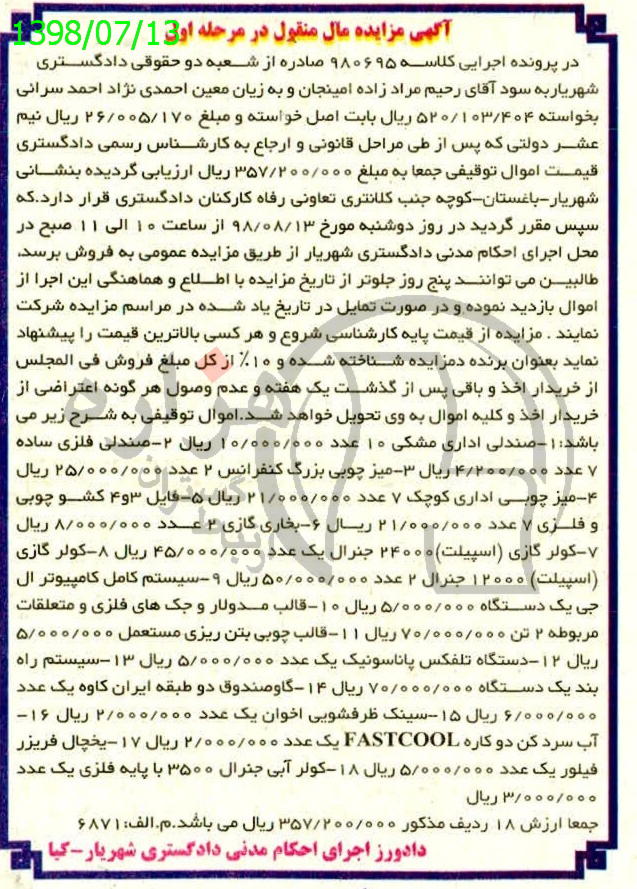 1398/07/13
آگهی مزایده مال منقول در مرحله اول
در پرونده اجرایی کلاسه ۹۸۰۶۹۵ صادره از شعبه دو حقوقی دادگستری
شهریاربه سود آقای رحیم مراد زاده امینجان و به زیان معین احمدی نژاد احمد سرانی
بخواسته ۵۲۰/۱۰۳/۴۰۴ ریال بابت اصل خواسته و مبلغ ۲۶/۰۰۵/۱۷۰ ریال نیم
عشر دولتی که پس از طی مراحل قانونی و ارجاع به کارشناس رسمی دادگستری
قیمت اموال توقیفی جمعا به مبلغ ۳۵۷/۲۰۰/۰۰۰ ریال ارزیابی گردیده بنشانی
شهریار-باغستان-کوچه جنب کلانتری تعاونی رفاه کارکنان دادگستری قرار دارد.که
سپس مقرر گردید در روز دوشنبه مورخ ۹۸/۰۸/۱۳ از ساعت ۱۰ الی ۱۱ صبح در
محل اجرای احکام مدنی دادگستری شهریار از طریق مزایده عمومی به فروش برسد.
طالبین می توانند پنج روز جلوتر از تاریخ مزایده با اطلاع و هماهنگی این اجرا از
اموال بازدید نموده و در صورت تمایل در تاریخ یاد شده در مراسم مزایده شرکت
نمایند . مزایده از قیمت پایه کارشناسی شروع و هر کسی بالاترین قیمت را پیشنهاد
نماید بعنوان برنده دمزایده شناخته شده و ۱۰٪ از کل مبلغ فروش فی المجلس
از خریدار اخذ و باقی پس از گذشت یک هفته و عدم وصول هر گونه اعتراضی از
خریدار اخذ و کلیه اموال به وی تحویل خواهد شد.اموال توقیفی به شرح زیر می
باشد:۱-صندلی اداری مشکی ۱۰ عدد ۱۰/۰۰۰/۰۰۰ ریال ۲-صندلی فلزی ساده
۷ عدد ۴/۲۰۰/۰۰۰ ریال ۳-میز چوبی بزرگ کنفرانس ۲ عدد ۲۵/۰۰۰/۰۰۰ ریال
۴-میز چوبی اداری کوچک ۷ عدد ۲۱/۰۰۰/۰۰۰ ریال ۵-فایل ۳و۴ کشو چوبی
و فلزی ۷ عدد ۲۱/۰۰۰/۰۰۰ ریال ۶-بخاری گازی ۲ عدد ۸/۰۰۰/۰۰۰ ریال
۷-کولر گازی (اسپیلت)۲۴۰۰۰ جنرال یک عدد ۴۵/۰۰۰/۰۰۰ ریال ۸-کولر گازی
(اسپیلت) ۱۲۰۰۰ جنرال ۲ عدد ۵۰/۰۰۰/۰۰۰ ریال ۹-سیستم کامل کامپیوتر ال
جی یک دستگاه ۵/۰۰۰/۰۰۰ ریال ۱۰-قالب مدولار و جک های فلزی و متعلقات
مربوطه ۲ تن ۷۰/۰۰۰/۰۰۰ ریال ۱۱-قالب چوبی بتن ریزی مستعمل ۵/۰۰۰/۰۰۰
ریال ۱۲-دستگاه تلفکس پاناسونیک یک عدد ۵/۰۰۰/۰۰۰ ریال ۱۳-سیستم راه
بند یک دستگاه ۷۰/۰۰۰/۰۰۰ ریال ۱۴-گاوصندوق دو طبقه ایران کاوه یک عدد
۶/۰۰۰/۰۰۰ ریال ۱۵-سینک ظرفشویی اخوان یک عدد ۲/۰۰۰/۰۰۰ ریال ۱۶-
آب سرد کن دو کاره FASTCOOL یک عدد ۲/۰۰۰/۰۰۰ ریال ۱۷-یخچال فریزر
فیلور یک عدد ۵/۰۰۰/۰۰۰ ریال ۱۸-کولر آبی جنرال ۳۵۰۰ با پایه فلزی یک عدد
۳/۰۰۰/۰۰۰ ریال
جمعا ارزش ۱۸ ردیف مذکور ۳۵۷/۲۰۰/۰۰۰ ریال می باشد.م.الف:۶۸۷۱
دادورز اجرای احکام مدنی دادگستری شهریار-کیا
هزاره